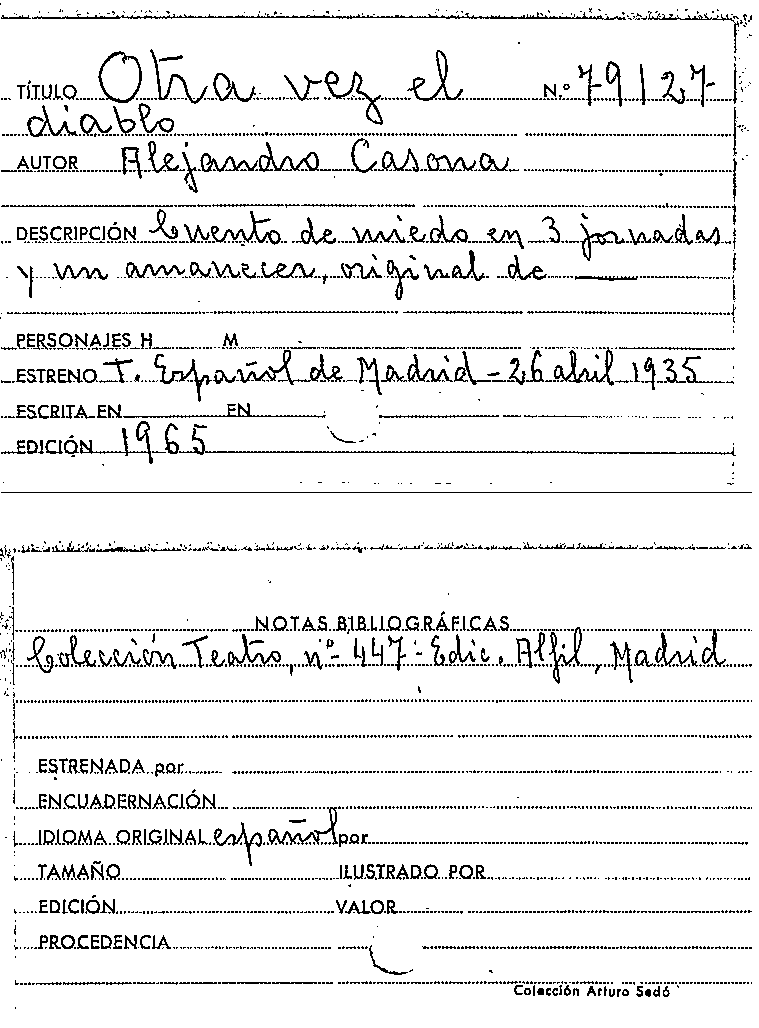 TÍTULO Otra vez el N.º 79127-
diablo
AUTOR Alejandro Casona
DESCRIPCIÓN Cuento de miedo en 3 jornadas
y un amanecer, original de ——
PERSONAJES H M
ESTRENO T. Español de Madrid - 26 abril 1935
ESCRITA EN EN
EDICIÓN 1965
NOTAS BIBLIOGRÁFICAS
Colección Teatro, nº 447 - Edic. Alfil, Madrid
ESTRENADA por
ENCUADERNACIÓN
IDIOMA ORIGINAL español por
TAMAÑO ILUSTRADO POR
EDICIÓN VALOR
PROCEDENCIA
Colección Arturo Sedó